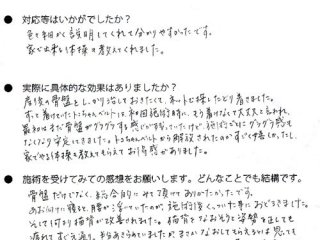 ● 対応等はいかがでしたか？
色々細かく説明してくれて分かりやすかったです。
家で出来る体操も教えてくれました。
● 実際に具体的な効果はありましたか？
産後の骨盤をしっかり治しておきたくて、ネットで探したどり着きました。
ずっと着けていたトコちゃんベルトは初回施術時に、もう着けなくて大丈夫と言われ、
最初はまだ骨盤がグラグラする感じが残っていたけど、施術ごとにグラグラ感も
なくなり安定してきました。トコちゃんベルトから解放されたのがすごく快適でした。
家でやる体操も教えてもらえてお得感がありました。
● 施術を受けてみての感想をお願いします。どんなことでも結構です。
骨盤だけでなく、総合的にみて頂けてありがたかったです。
あお向けに寝ると腰が浮いていたのが、施術後くっついた事におどろきました。
そしてなにより猫背が改善されました。猫背をなおそうと姿勢を正しても
疲れてすぐ戻り、半分あきらめていましたが、まさかなおしてもらえるとは思っても